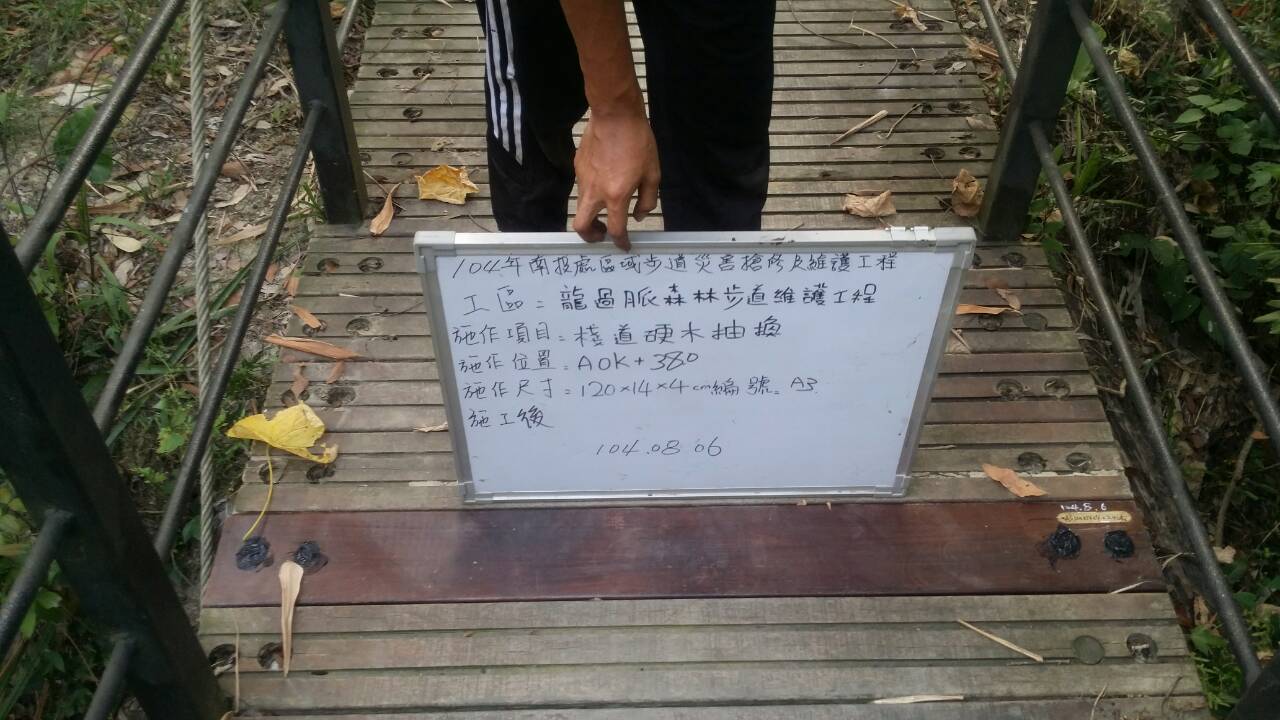 104年南投處區域步道災害搶修及維護工程
工區=龍過脈森林步道維護工程
施作項目=棧道硬木抽換
施作位置=A0K+380
施作尺寸=120×14×4cm編號=A3
施工後
104.08.06
104.8.6